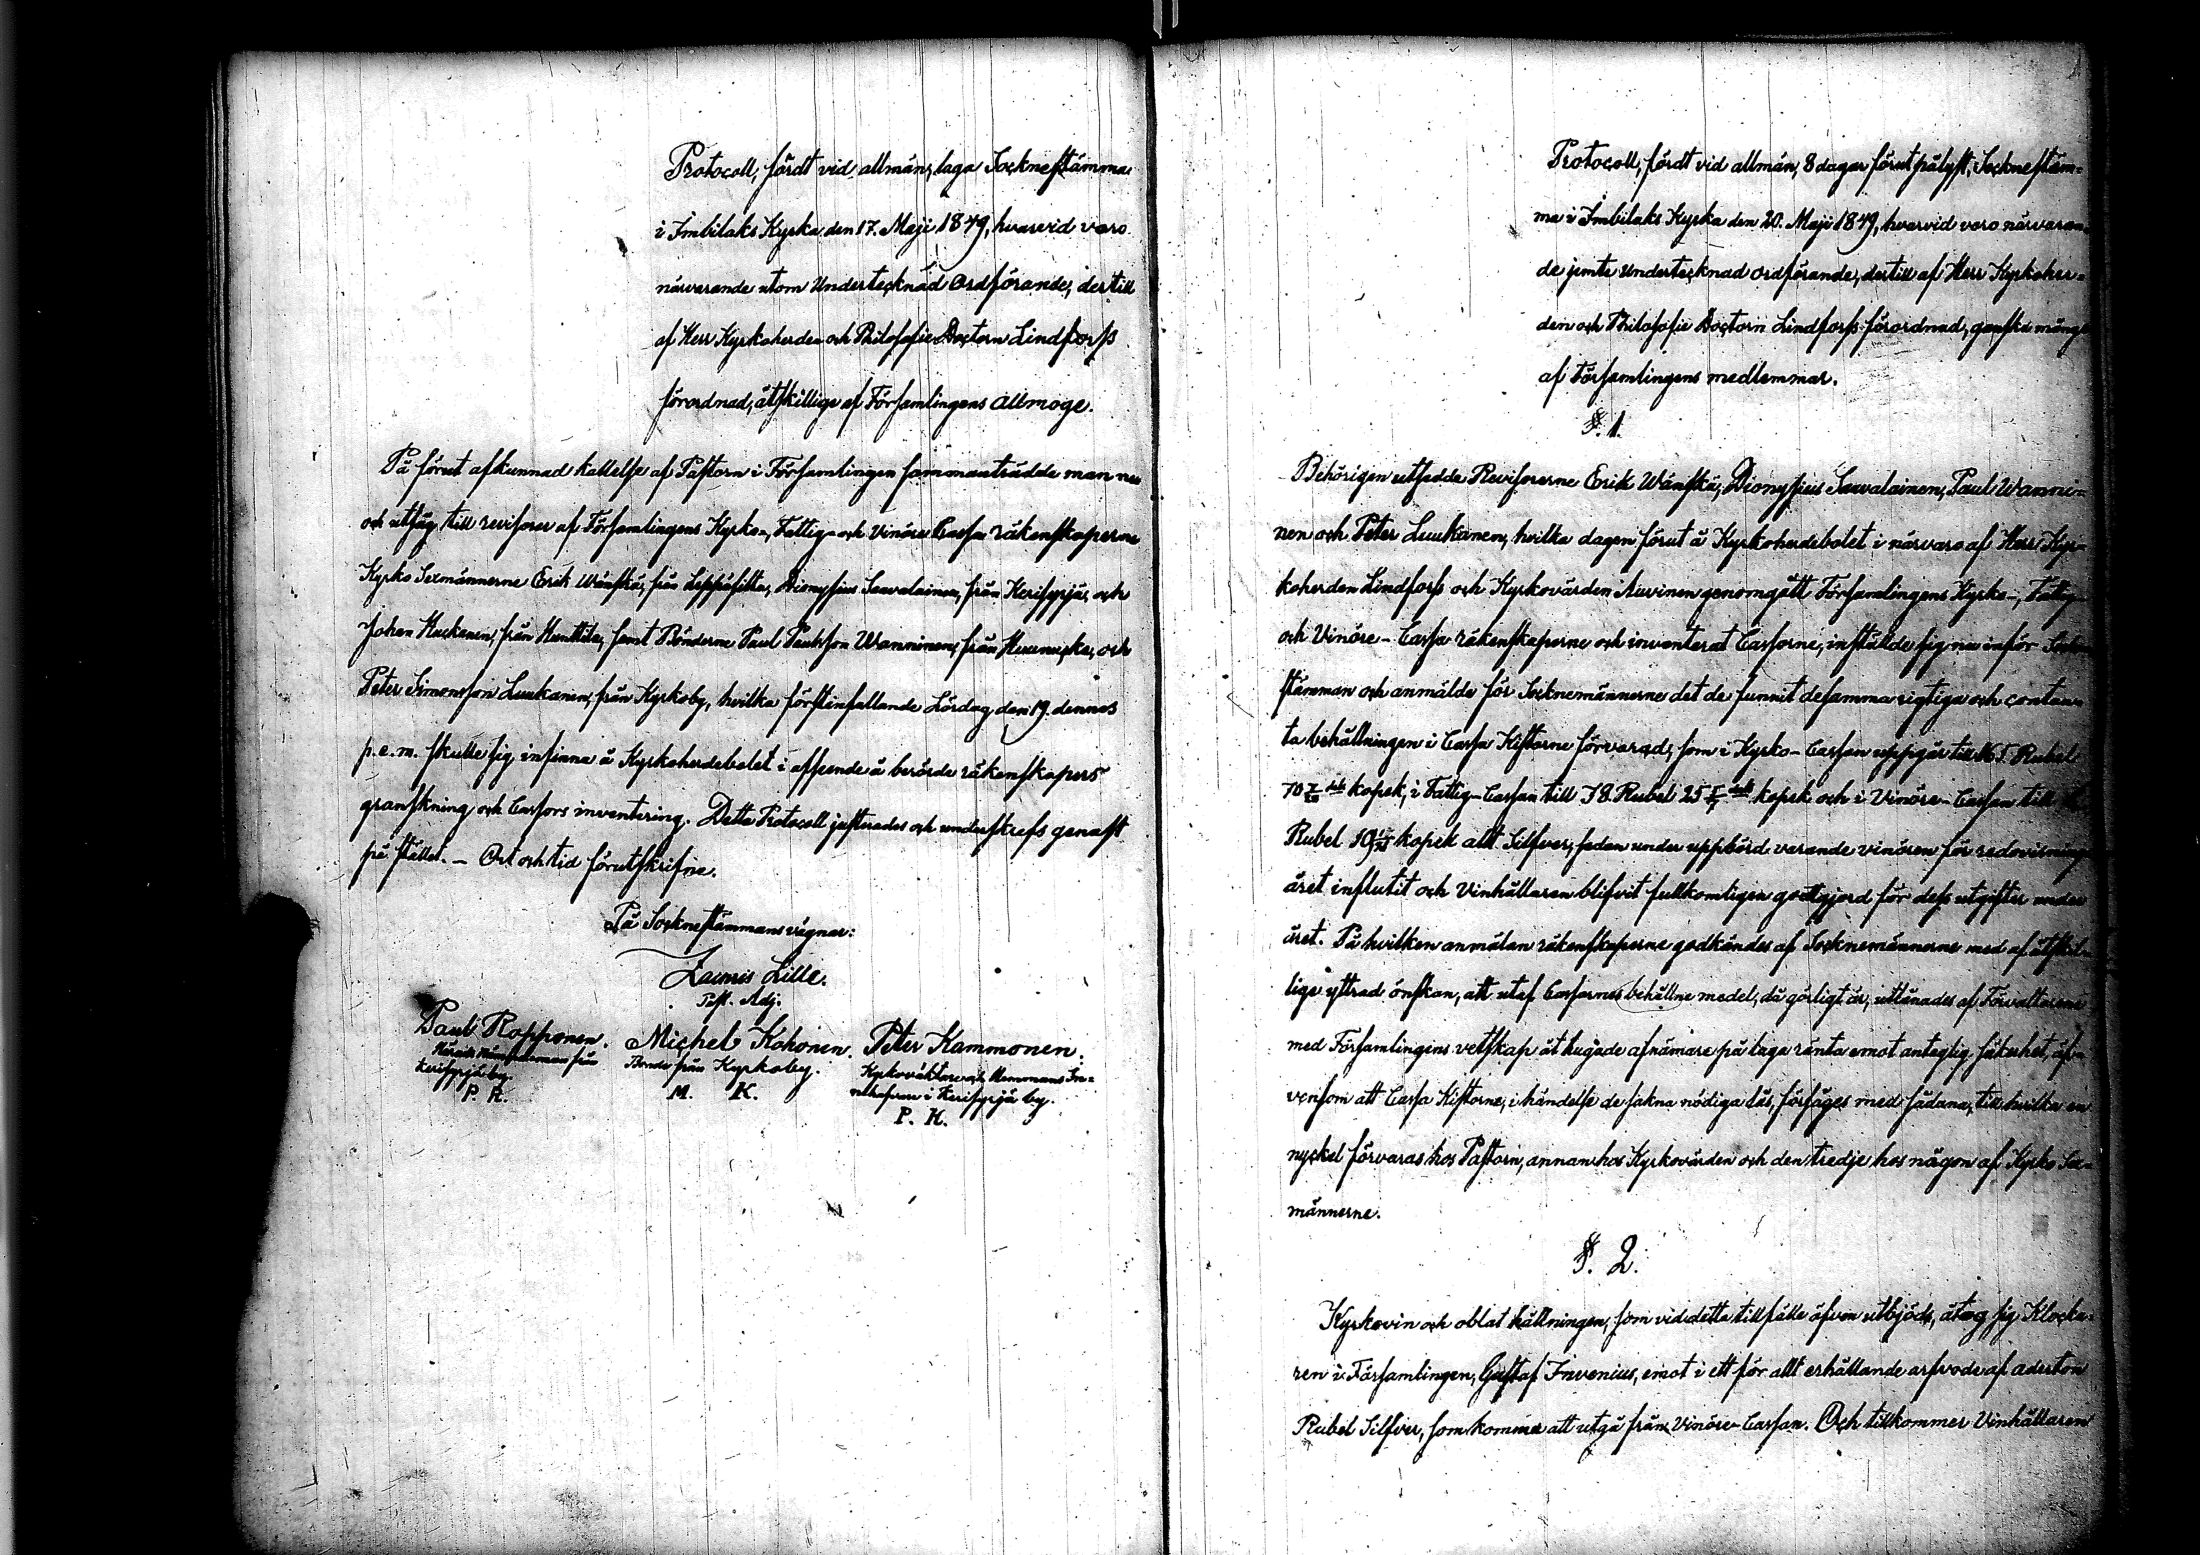 Protocoll, fördt vid allmän, laga Sockneståmma
i Imbilaks Kyrka den 17. Maji 1849, hvarvid voro
närvarande utom Undertecknad Ordförande, dertill
af Herr Kyrkoherden och Philosofie Doctorn Lindforss
förordnad, åtskillige af Församlingens Allmoge.
På förut afkunnad kallelse af Pastorn i Församlingen sammanträdde man nu
och utsåg till revisorer af Församlingens Kyrko-, Fattig- och Vinöre Cassa räkenskaperne
Kyrko Sexmännerne Erik Wänskä, från Leppäsilta, Dionysius Saavalainen, från Kerisyrjä, och
Johan Kuckanen, från Hunttila, samt Bönderne Paul Paulsson Wanninen, från Huunucka, och
Peter Simonsson Luukanen, från Kyrkoby, hvilka förstinfallande Lördag den 19. dennes
p.e.m. skulle sig infinna å Kyrkoherdebolet i afseende å berörde räkenskapers
granskning och Cassors inventering. Detta Protocoll justerades och underskrefs genast
på stället. – Ort och tid förutskrifne.
På Sockneståmmans vägnar:
Zauris Lille.
Past. Adj.
Paul Ropponen. Michel Kohonen. Peter Kammonen.
Härads Nämndeman från Bonde från Kyrkoby. Kyrkovaktare och Hemmans In-
Kerisyrjä by. M. K. nehafvare i Kerisyrjä by.
P. R. P. K.
Protocoll, fördt vid allmän, 8 dagar förut pålyst, Socknestäm-
ma i Imbilaks Kyrka den 20. Maji 1849, hvarvid voro närvaran-
de jemte Undertecknad Ordförande, dertill af Herr Kyrkoher-
den och Philosofie Doctorn Lindforss förordnad, ganska många
af Församlingens medlemmar.
§. 1.
Behörigen utsedde Revisorerne Erik Wänskä, Dionysius Saavalainen, Paul Wanni-
nen och Peter Luukanen, hvilka dagen förut å Kyrkoherdebolet i närvaro af Herr Kyr-
koherden Lindforss och Kyrkovärden Auvinen genomgått Församlingens Kyrko-, Fattig-
och Vinöre-Cassa räkenskaperne och inventerat Cassorne, inställde sig nu inför Sockne-
stämman och anmälde för Socknemännerne det de funnit desamma rigtiga och contan-
ta behållningen i Cassa Kistorne förvarad, som i Kyrko-Cassan uppgår till Rubel
kopek, i Fattig-Cassan till 38. Rubel kopek och i Vinöre-Cassan till
Rubel kopek allt Silfver, sedan under uppbörd varande vinören för redovisnings
året influtit och Vinhållaren blifvit fullkomligen godtgjord för dess utgifter under
året. På hvilken anmälan räkenskaperne godkändes af Socknemännerne med af åtskil-
lige yttrad önskan, att utaf Cassornes behållne medel, då görligt är, utlånades af Förvaltarene
med Församlingens vetskap åt hugade afnämare på laga ränta emot antaglig säkerhet, äf-
vensom att Cassa Kistorne, i händelse de sakna nödiga lås, försåges med sådana, till hvilka en
nyckel förvaras hos Pastorn, annan hos Kyrkovärden och den tredje hos någon af Kyrko Sex-
männerne.
§. 2.
Kyrkovin och oblat hållningen, som vid detta tillfälle äfven utbjöds, åtog sig Klocka-
ren i Församlingen, Gustaf Invenius, emot i ett för allt erhållande arfvode af aderton
Rubel Silfver, som komma att utgå från Vinöre-Cassan. Och tillkommer Vinhållaren